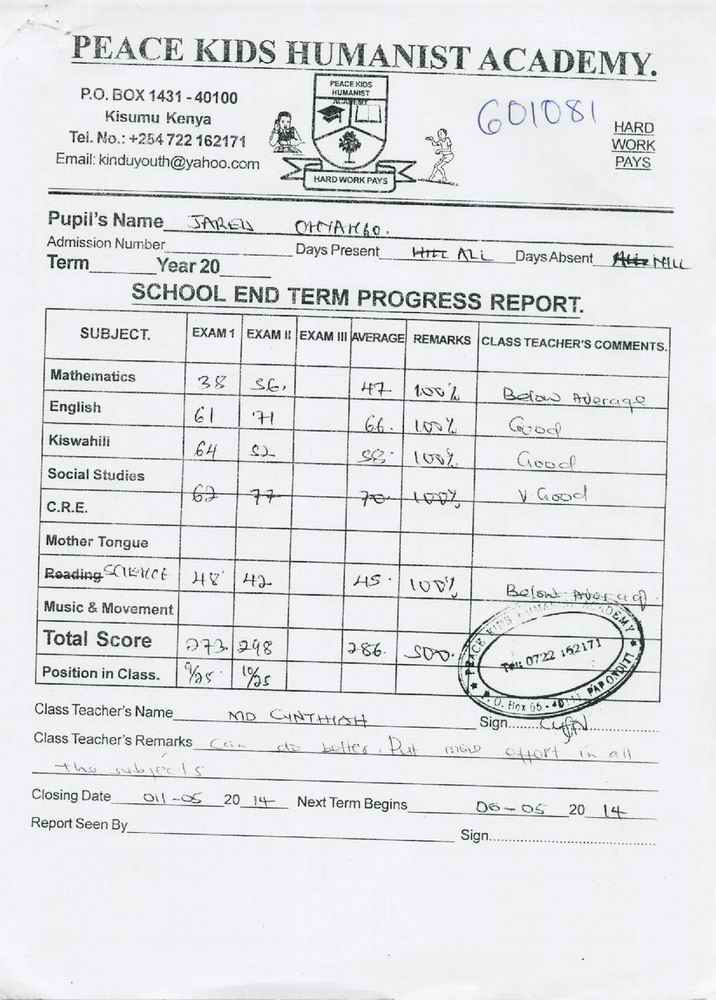 PEACE KIDS HUMANIST ACADEMY.
P.O. BOX 1431 - 40100
Kisumu Kenya
Tel. No.: +254 722 162171
Email: kinduyouth@yahoo.com
PEACE KIDS
HUMANIST
ACADEMY
HARD WORK PAYS
601081
HARD
WORK
PAYS
Pupil's Name JARED
Admission Number Days Present ALL Days Absent NILL
Term Year 20
SCHOOL END TERM PROGRESS REPORT.
SUBJECT. EXAM 1 EXAM II EXAM III AVERAGE REMARKS CLASS TEACHER'S COMMENTS.
Mathematics 38 56. 47 100% Below Average
English 61 71 66. 100% Good
Kiswahili 64 52 58. 100% Good
Social Studies
C.R.E. 62 77 70 100% V Good
Mother Tongue
Reading SCIENCE 48 42 45. 100% Below Average
Music & Movement
Total Score 273 298 286. 500.
Position in Class. 9/25 10/25
PEACE KIDS HUMANIST ACADEMY
Tel: 0722 162171
Class Teacher's Name MD CYNTHIAH Sign
Class Teacher's Remarks Can do better. Put more effort in all
the subjects
Closing Date 011-05 20 14 Next Term Begins 06-05 20 14
Report Seen By Sign